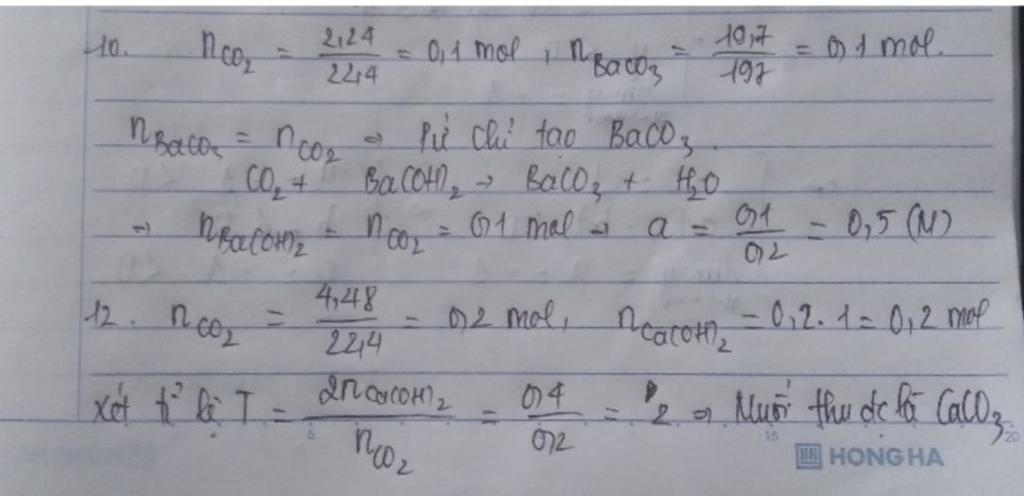 10. n_CO₂ = 2,24/22,4 = 0,1 mol, n_BaCO₃ = 19,7/197 = 0,1 mol.
n_BaCO₃ = n_CO₂ ⇒ Pứ chỉ tạo BaCO₃.
CO₂ + Ba(OH)₂ → BaCO₃ + H₂O
→ n_Ba(OH)₂ = n_CO₂ = 0,1 mol → a = 0,1/0,2 = 0,5 (M)
12. n_CO₂ = 4,48/22,4 = 0,2 mol, n_Ca(OH)₂ = 0,2. 1 = 0,2 mol
Xét tỉ lệ T = 2n_Ca(OH)₂/n_CO₂ = 0,4/0,2 = 2 ⇒ Muối thu đc là CaCO₃
5 15 20
HONG HA